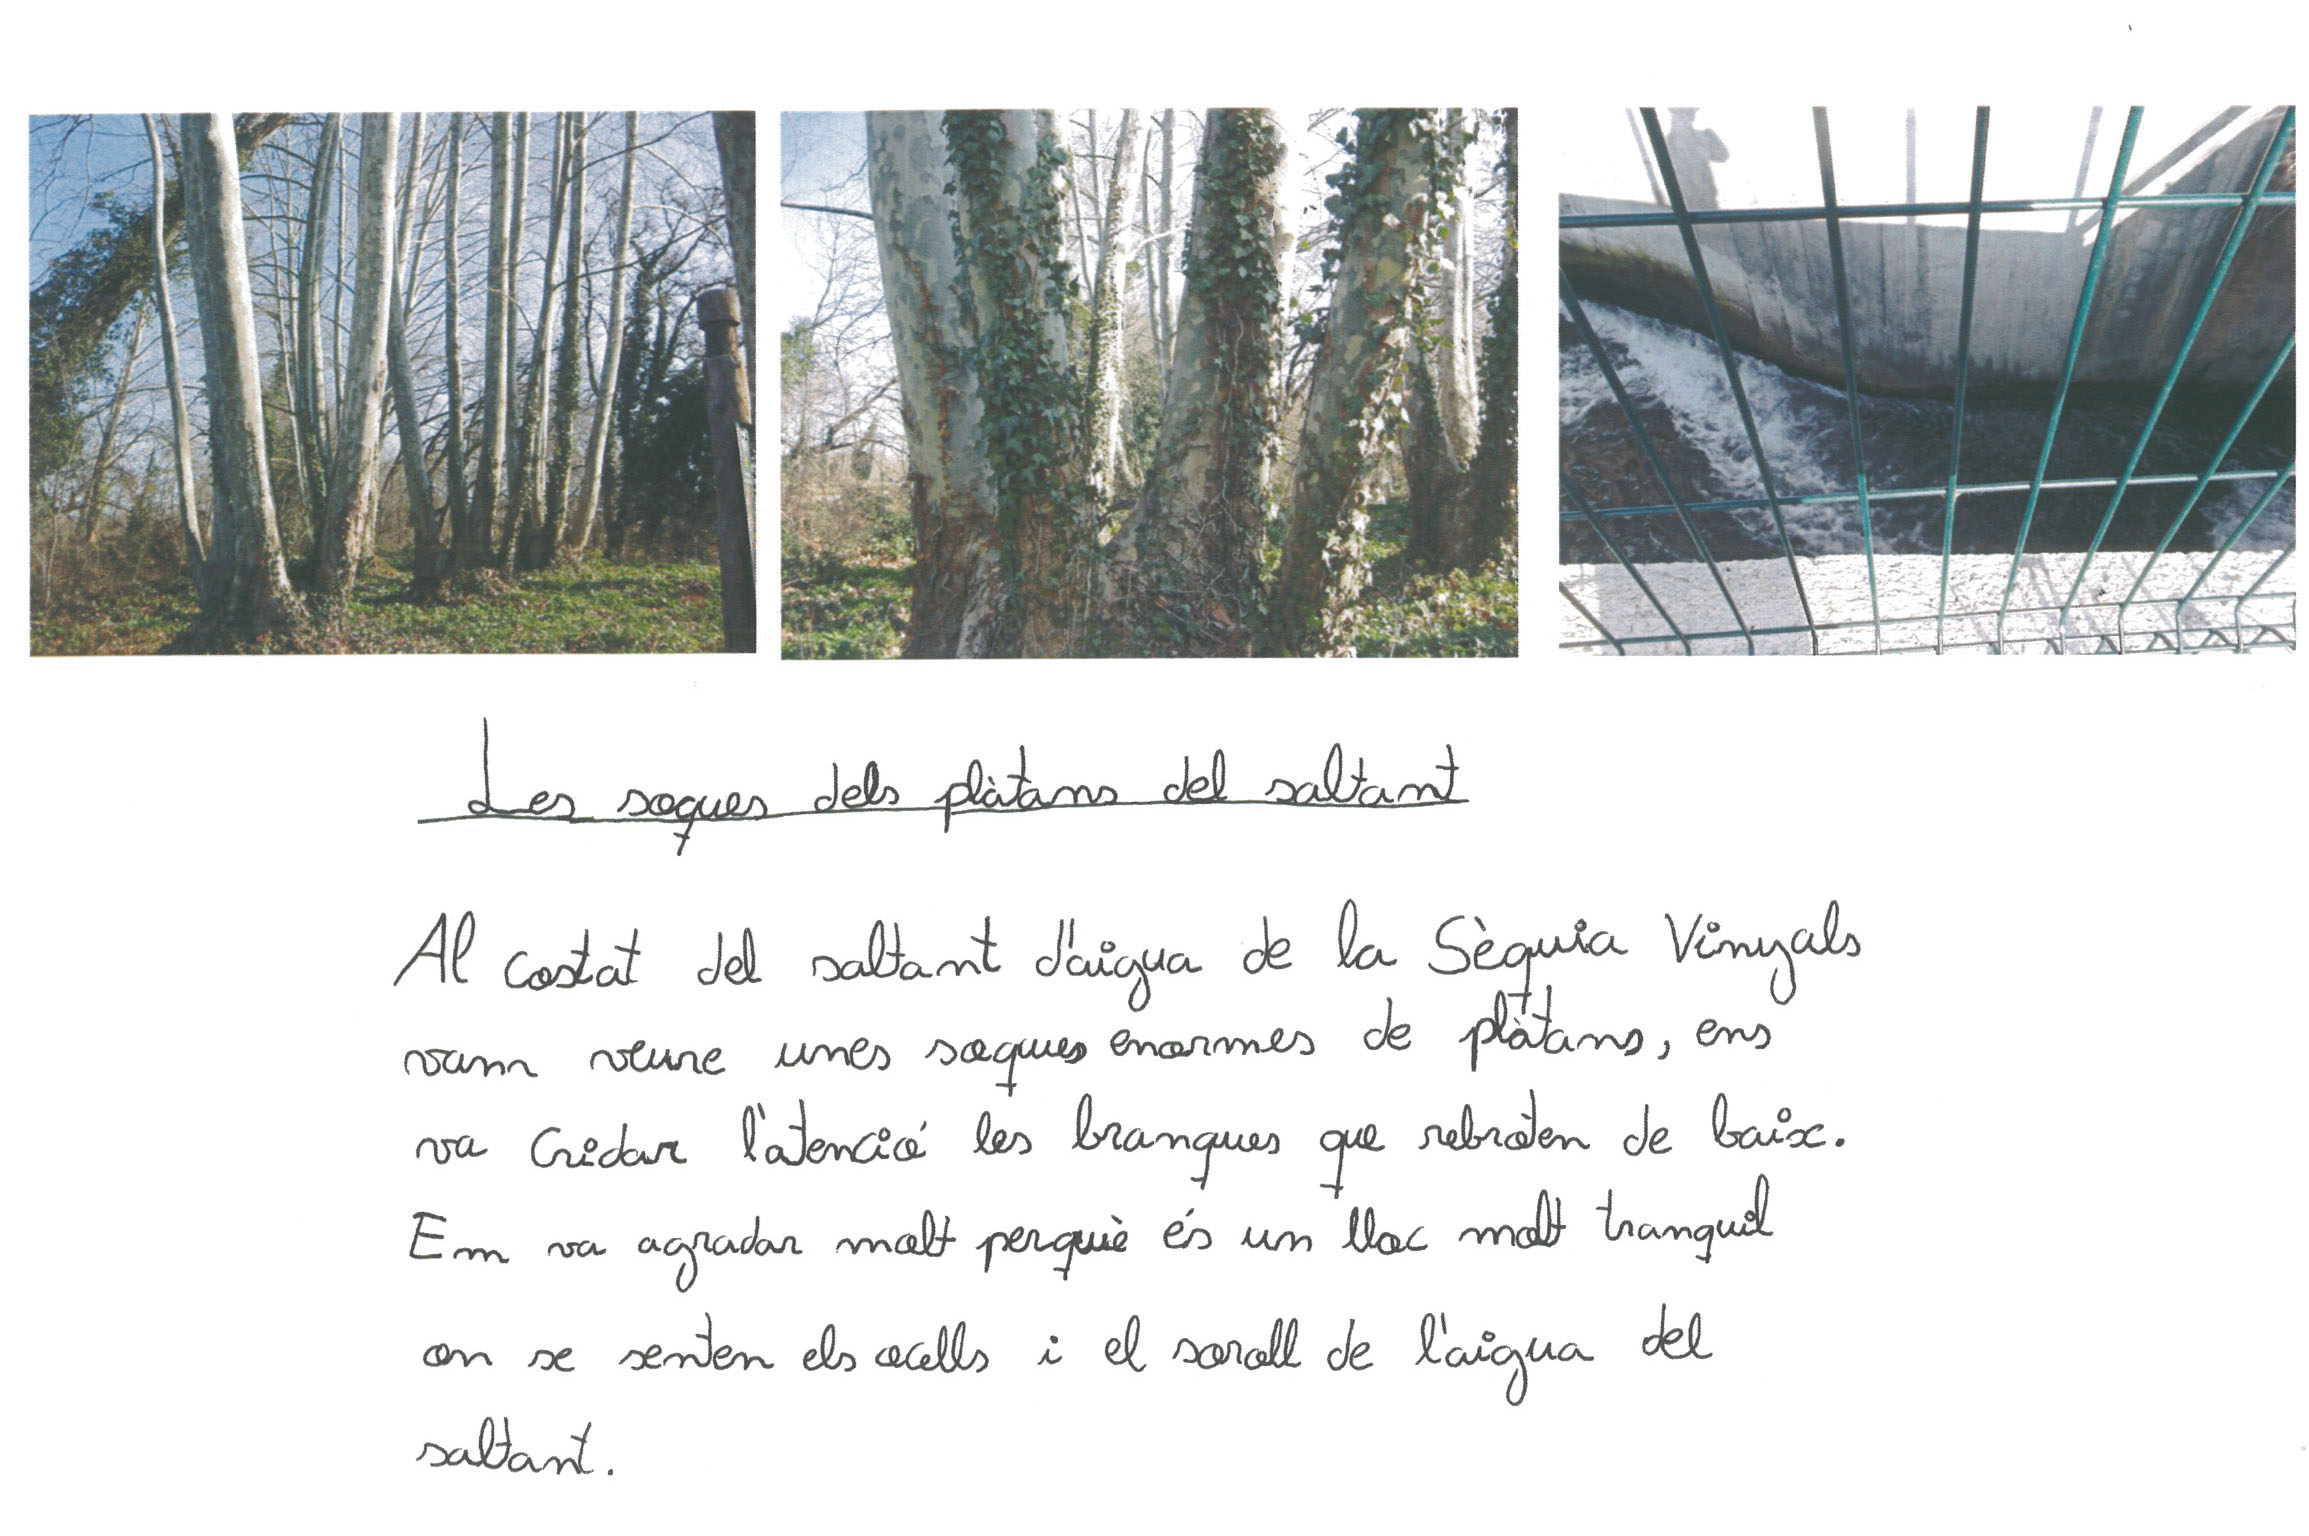 Les soques dels plàtans del saltant
Al costat del saltant d'aigua de la Sèquia Vinyals
vam veure unes soques enormes de plàtans, ens
va cridar l'atenció les branques que rebroten de baix.
Em va agradar molt perquè és un lloc molt tranquil
on se senten els ocells i el soroll de l'aigua del
saltant.